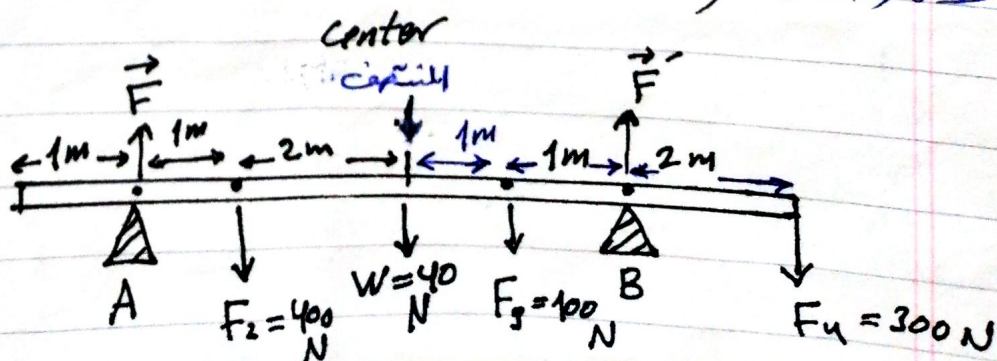 center
المنتصف
F F′
1m 1m 2m 1m 1m 2m
A F2 = 400 N W = 40 N F3 = 100 N B F4 = 300 N